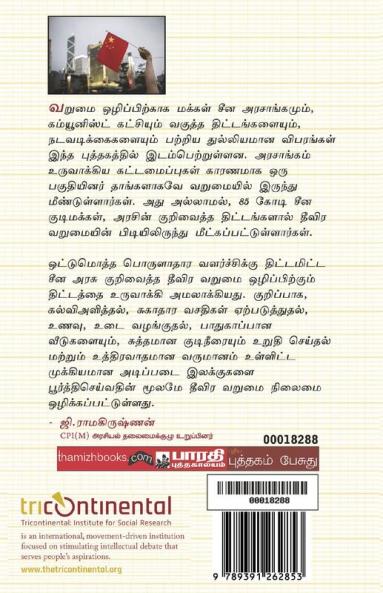 வறுமை ஒழிப்பிற்காக மக்கள் சீன அரசாங்கமும்,
கம்யூனிஸ்ட் கட்சியும் வகுத்த திட்டங்களையும்,
நடவடிக்கைகளையும் பற்றிய துல்லியமான விபரங்கள்
இந்த புத்தகத்தில் இடம்பெற்றுள்ளன. அரசாங்கம்
உருவாக்கிய கட்டமைப்புகள் காரணமாக ஒரு
பகுதியினர் தாங்களாகவே வறுமையில் இருந்து
மீண்டுள்ளார்கள். அது அல்லாமல், 85 கோடி சீன
குடிமக்கள், அரசின் குறிவைத்த திட்டங்களால் தீவிர
வறுமையின் பிடியிலிருந்து மீட்கப்பட்டுள்ளார்கள்.
ஒட்டுமொத்த பொருளாதார வளர்ச்சிக்கு திட்டமிட்ட
சீன அரசு குறிவைத்த தீவிர வறுமை ஒழிப்பிற்கும்
திட்டத்தை உருவாக்கி அமலாக்கியது. குறிப்பாக,
கல்விஅளித்தல், சுகாதார வசதிகள் ஏற்படுத்துதல்,
உணவு, உடை வழங்குதல், பாதுகாப்பான
வீடுகளையும், சுத்தமான குடிநீரையும் உறுதி செய்தல்
மற்றும் உத்திரவாதமான வருமானம் உள்ளிட்ட
முக்கியமான அடிப்படை இலக்குகளை
பூர்த்திசெய்வதின் மூலமே தீவிர வறுமை நிலைமை
ஒழிக்கப்பட்டுள்ளது.
- ஜி.ராமகிருஷ்ணன்
CPI(M) அரசியல் தலைமைக்குழு உறுப்பினர்
00018288
thamizhbooks.com பாரதி புத்தகாலயம் புத்தகம் பேசுது
00018288
tricontinental
Tricontinental: Institute for Social Research
is an international, movement-driven institution
focused on stimulating intellectual debate that
serves people's aspirations.
www.thetricontinental.org
9 789391 262853